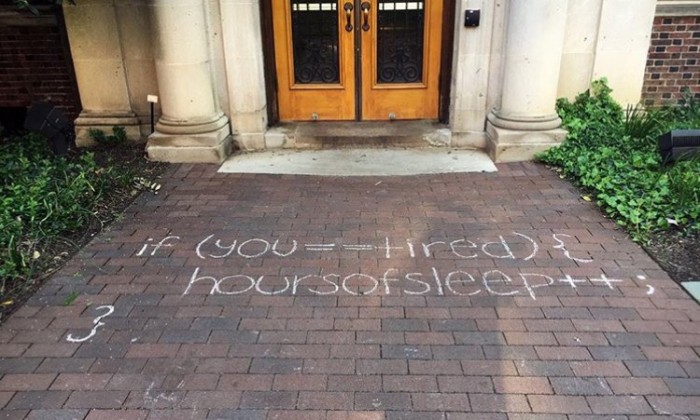 if (you==tired) {
hoursofsleep++;
}